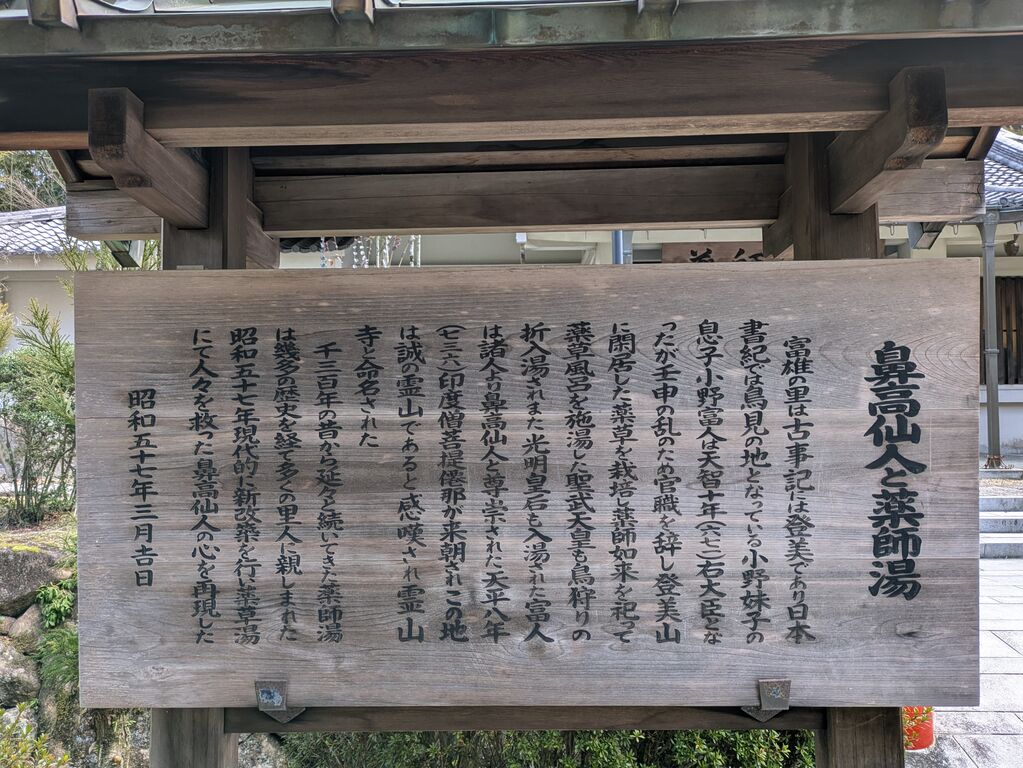 鼻高仙人と薬師湯
富雄の里は古事記には登美であり日本
書紀では鳥見の地となっている小野妹子の
息子小野富人は天智十年(六七一)右大臣とな
ったが壬申の乱のため官職を辞し登美山
に閑居した薬草を栽培し薬師如来を祀って
薬草風呂を施湯した聖武天皇も鳥狩りの
折入湯されまた光明皇后も入湯された富人
は諸人より鼻高仙人と尊崇された天平八年
(七三六)印度僧菩提僊那が来朝されこの地
は誠の霊山であると感嘆され霊山
寺と命名された
千三百年の昔から延々と続いてきた薬師湯
は幾多の歴史を経て多くの里人に親しまれた
昭和五十七年現代的に新改築を行い薬草湯
にて人々を救った鼻高仙人の心を再現した
昭和五十七年三月吉日